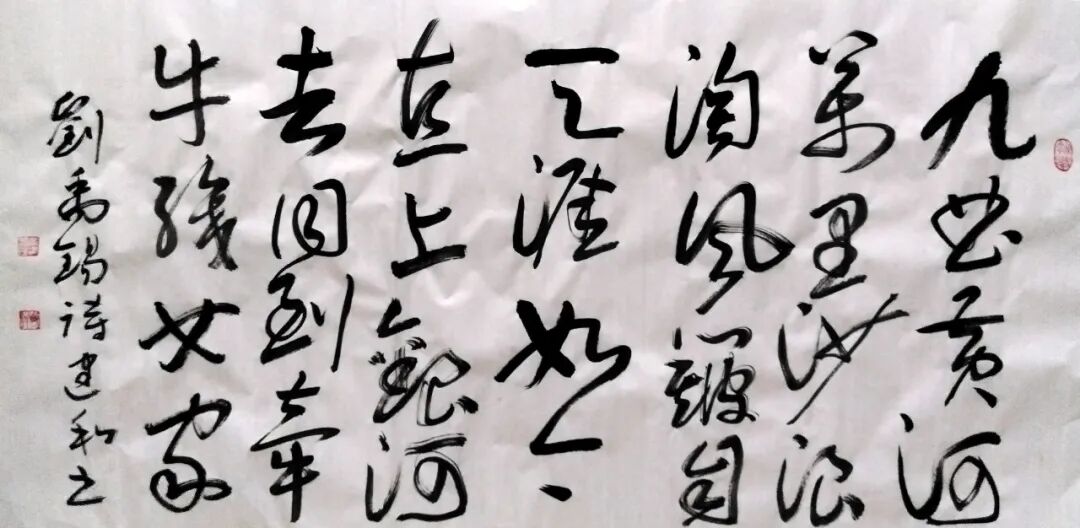 九曲黃河
萬里沙浪
淘風簸自
天涯如今
直上銀河
去同到牽
牛織女家
劉禹錫詩建和书